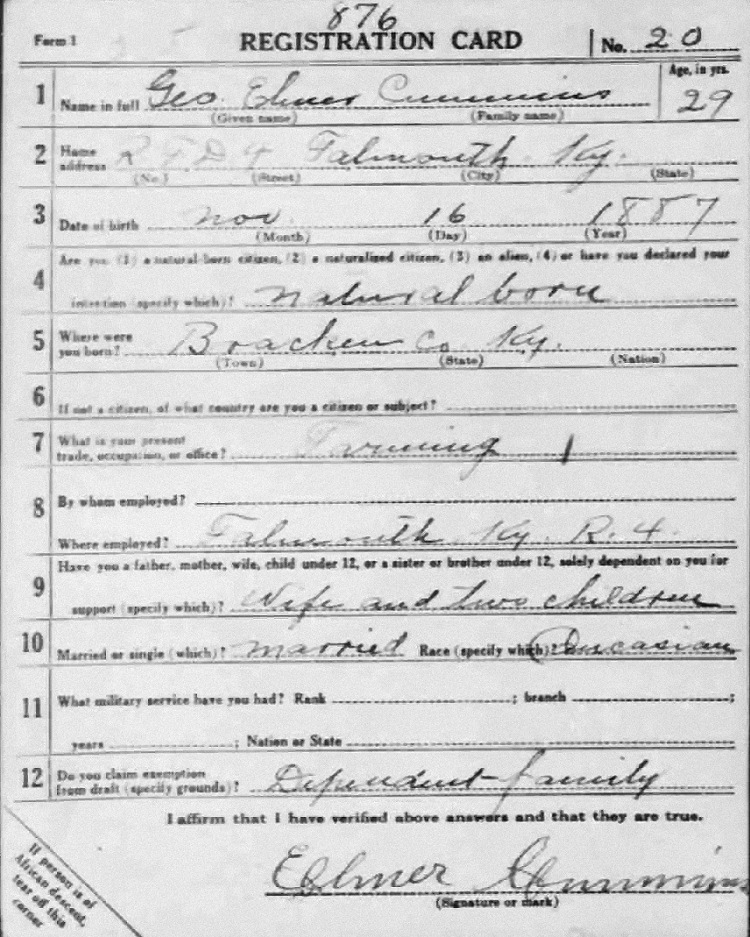 876
Form 1 REGISTRATION CARD No. 20
1 Name in full Geo. Elmer Cummins Age, in yrs.
(Given name) (Family name) 29
2 Home address R F D 4 Falmouth Ky.
(No.) (Street) (City) (State)
3 Date of birth Nov. 16 1887
(Month) (Day) (Year)
4 Are you (1) a natural-born citizen, (2) a naturalized citizen, (3) an alien, (4) or have you declared your
intention (specify which)? natural born
5 Where were you born? Bracken Co Ky.
(Town) (State) (Nation)
6 If not a citizen, of what country are you a citizen or subject?
7 What is your present
trade, occupation, or office? Farming
8 By whom employed?
Where employed? Falmouth Ky. R. 4.
9 Have you a father, mother, wife, child under 12, or a sister or brother under 12, solely dependent on you for
support (specify which)? Wife and two children
10 Married or single (which)? married Race (specify which)? Caucasian
11 What military service have you had? Rank ; branch ;
years ; Nation or State
12 Do you claim exemption
from draft (specify grounds)? Dependent family
I affirm that I have verified above answers and that they are true.
Elmer Cummins
(Signature or mark)
If person is of
African descent,
tear off this
corner